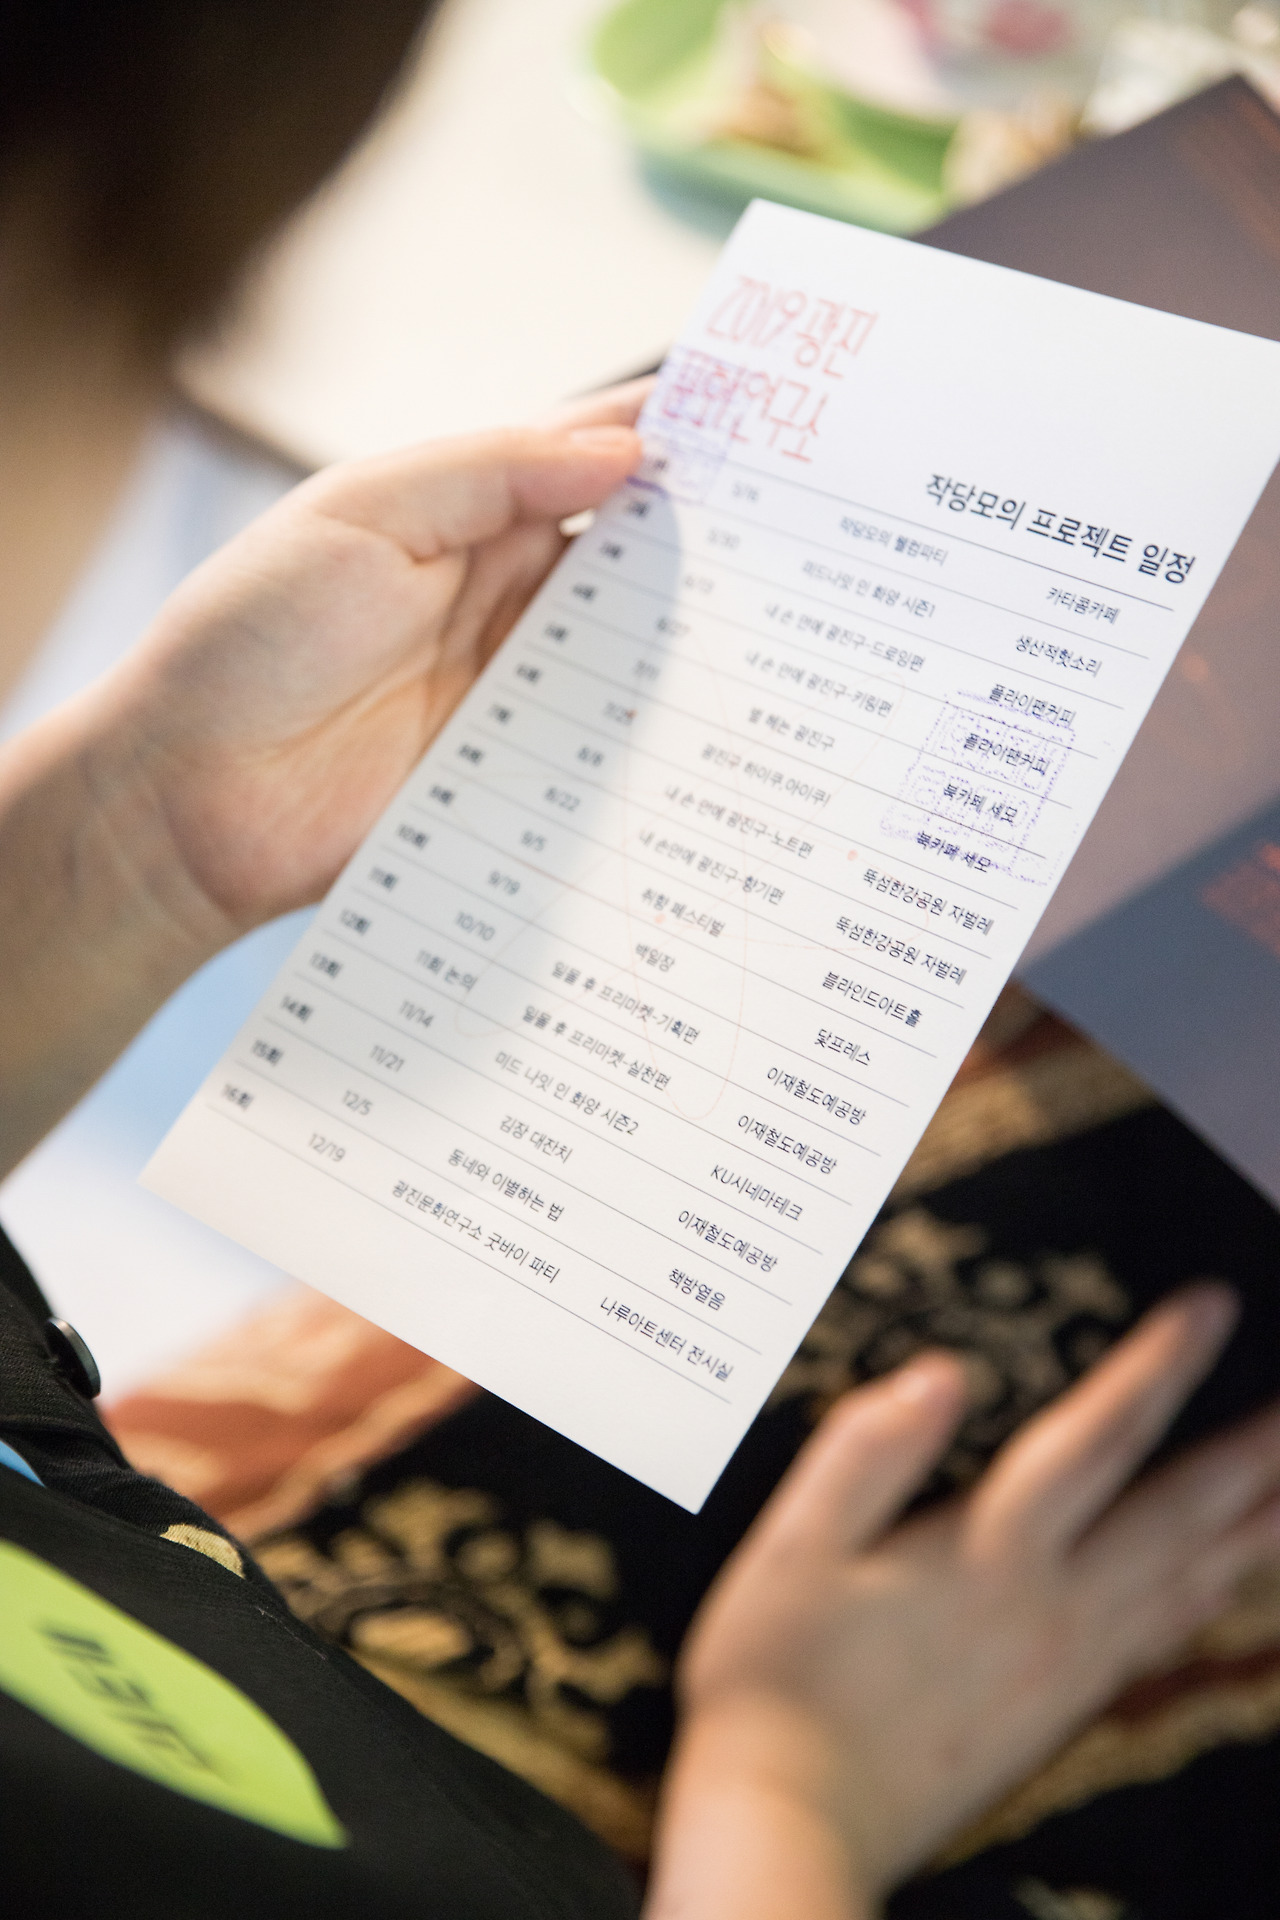 2019 광진
문화연구소
작당모의 프로젝트 일정
5/16 작당모의 웰컴파티 카타콤카페
2회 5/30 미드나잇 인 화양 시즌1 생산적헛소리
3회 6/13 내 손 안에 광진구-드로잉편 플라이팬커피
4회 6/27 내 손 안에 광진구-키링편 플라이팬커피
5회 7/11 별 헤는 광진구 북카페 세모
6회 7/25 광진구 하이쿠,아이쿠! 북카페 세모
7회 8/8 내 손 안에 광진구-노트편 뚝섬한강공원 자벌레
8회 8/22 내 손안에 광진구-향기편 뚝섬한강공원 자벌레
9회 9/5 취향 페스티벌 블라인드아트홀
10회 9/19 백일장 닻프레스
11회 10/10 일몰 후 프리마켓-기획편 이재철도예공방
12회 11회 논의 일몰 후 프리마켓-실천편 이재철도예공방
13회 11/14 미드 나잇 인 화양 시즌2 KU시네마테크
14회 11/21 김장 대잔치 이재철도예공방
15회 12/5 동네와 이별하는 법 책방열음
16회 12/19 광진문화연구소 굿바이 파티 나루아트센터 전시실